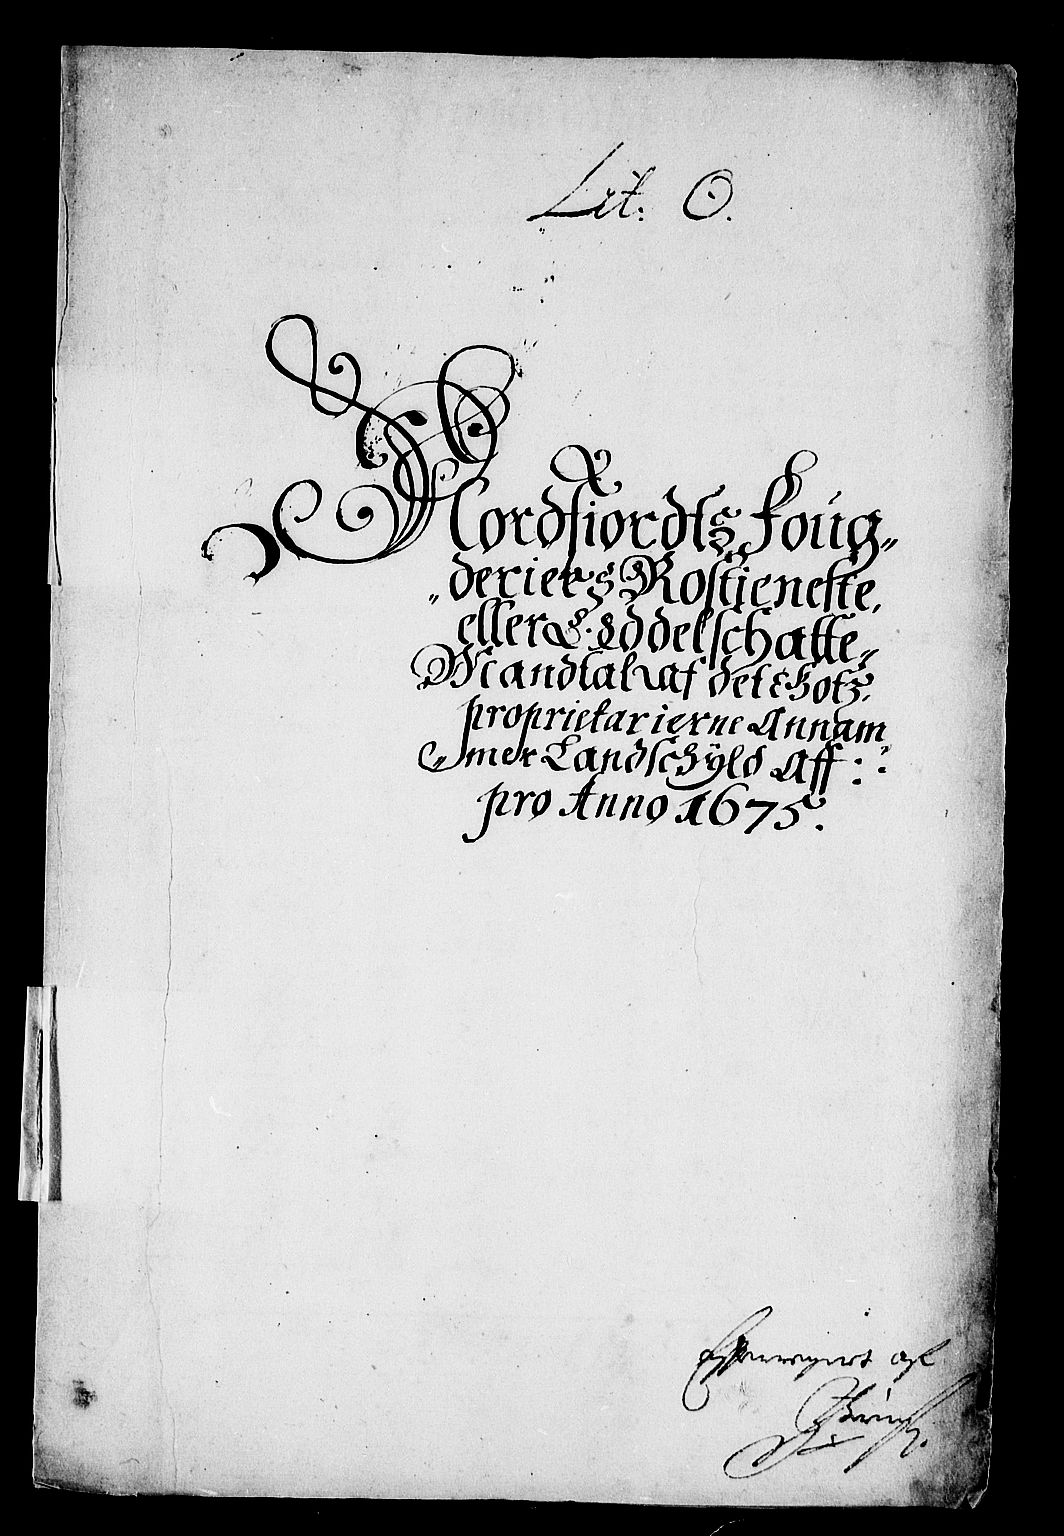 Lit: O.
Nordfiordts Foug„
„deriers Rostieneste,
eller E. Oddelschatte„
Mandtal af det Gotz,
proprietarierne Annam
„mer Landschÿld Aff:
pro Anno 1675.